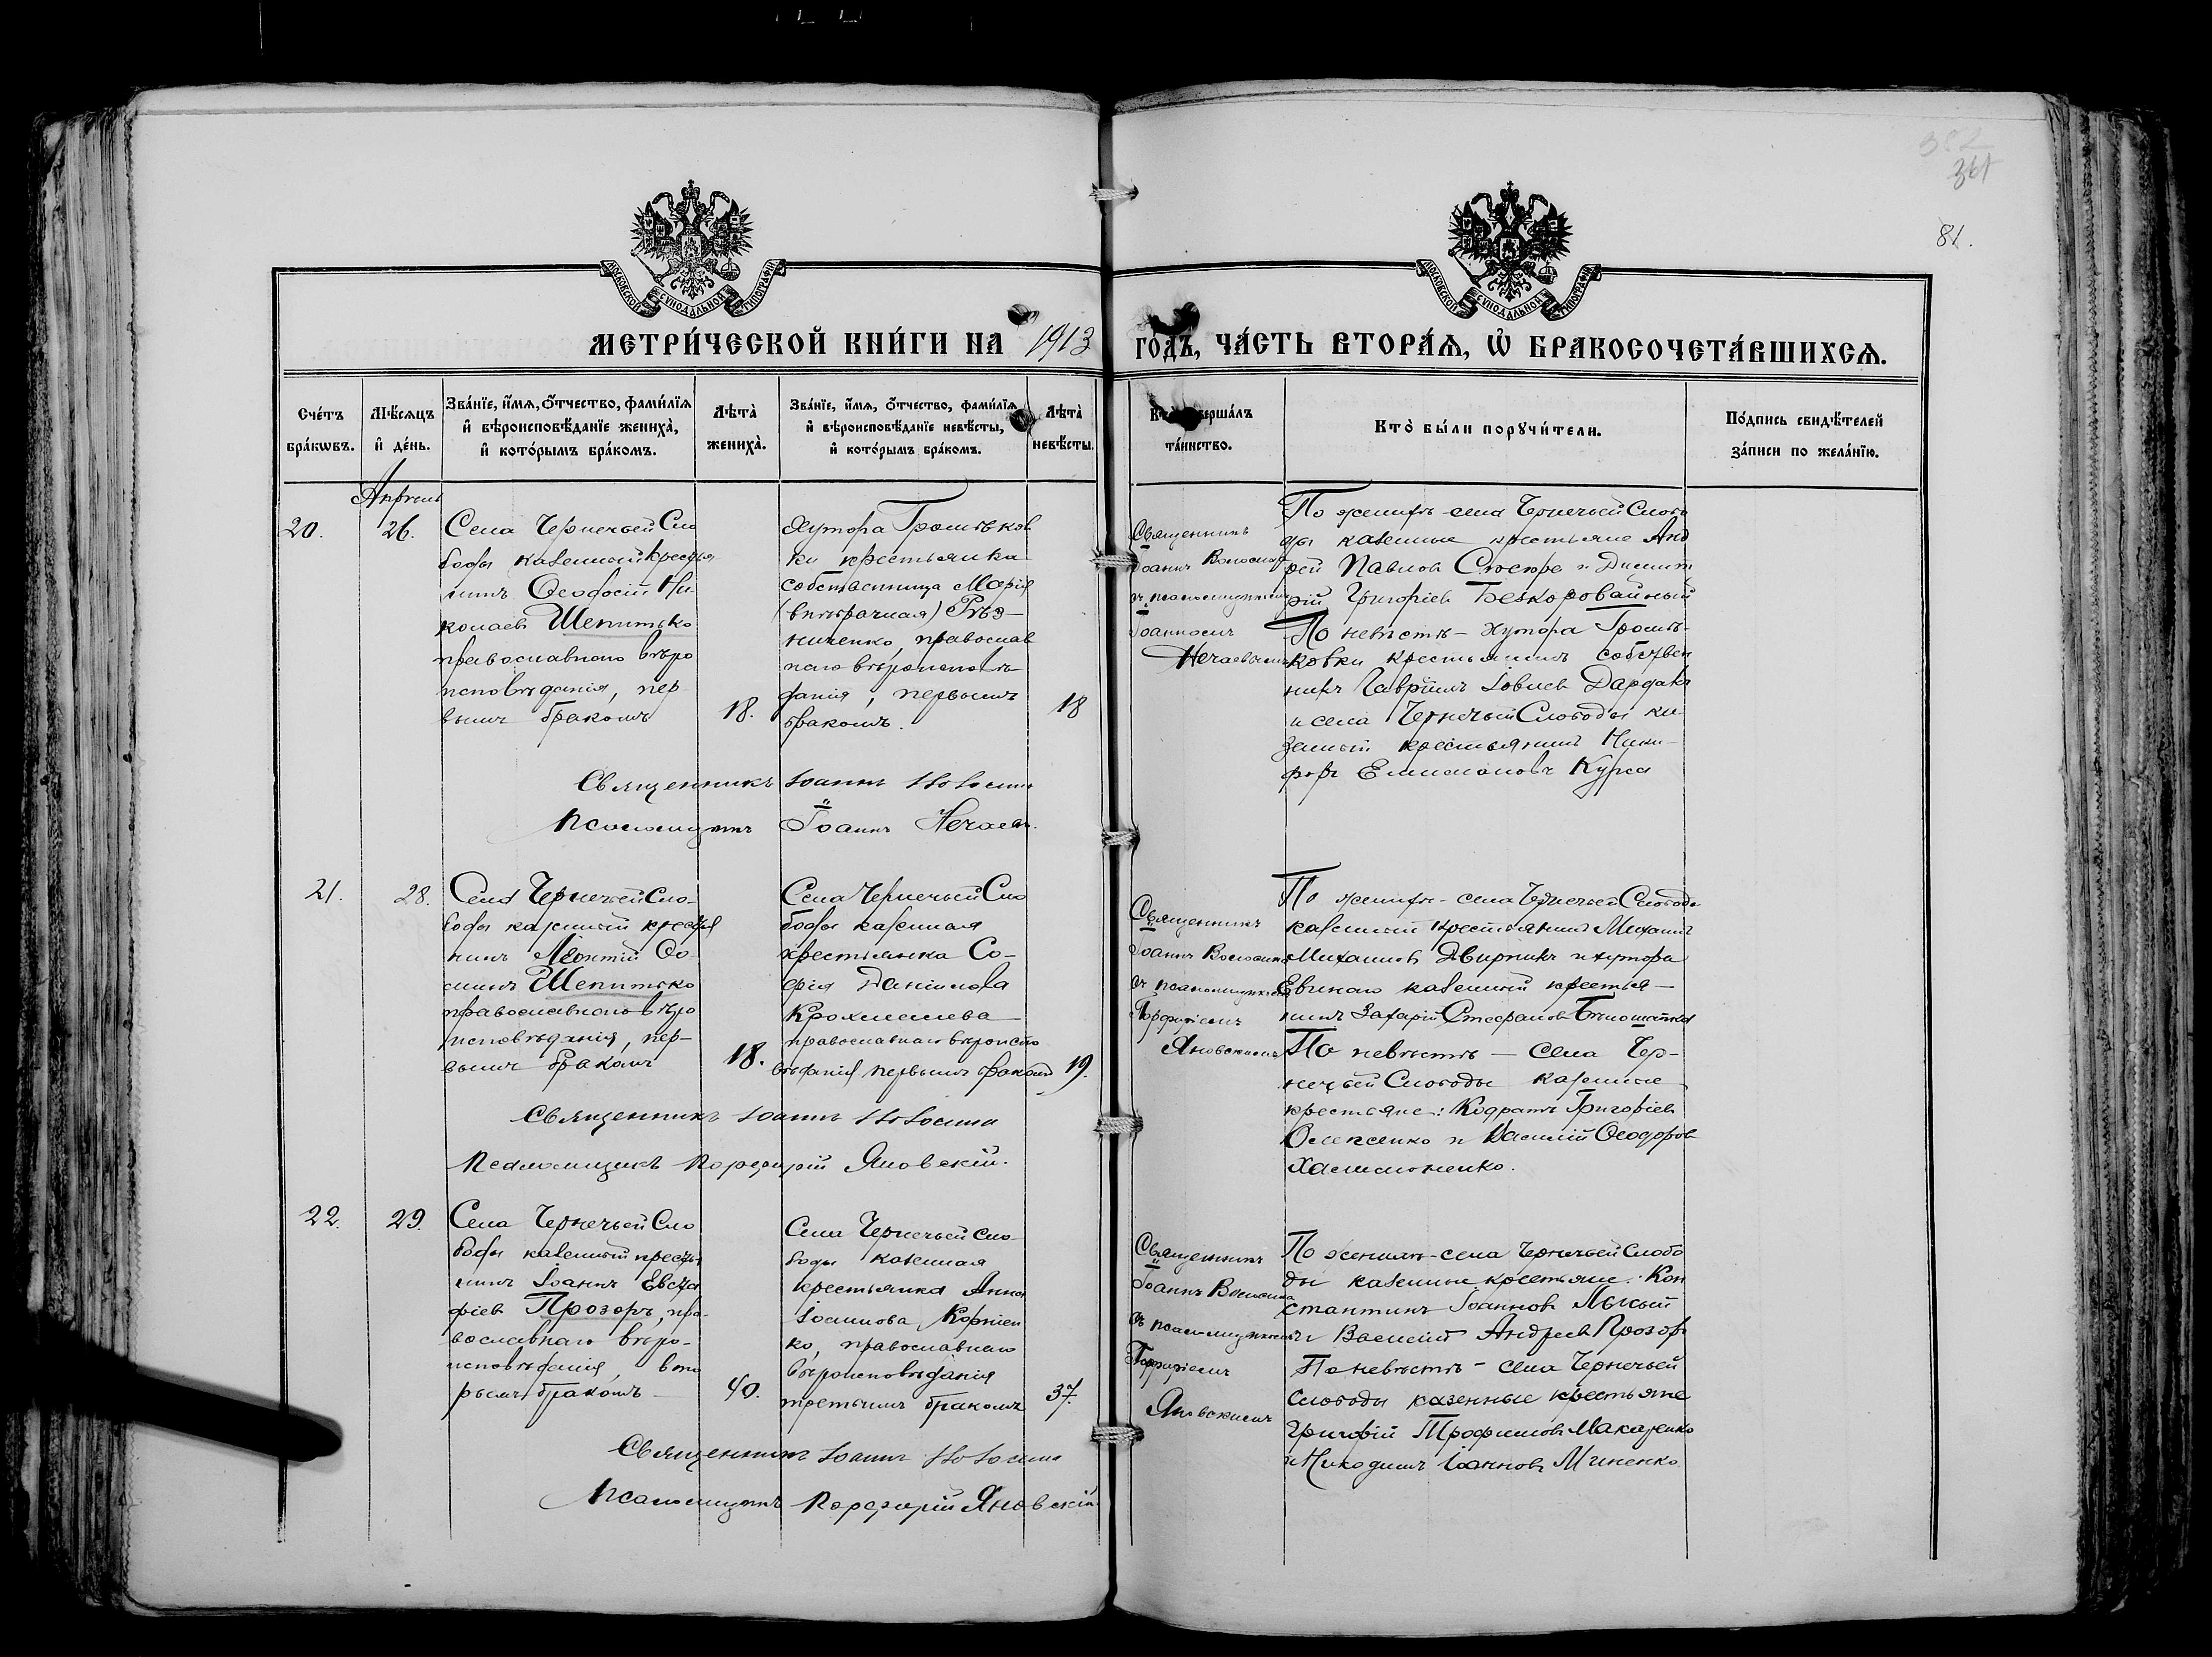 382
361
81.
МОСКОВСКОЙ СѴНОДАЛЬНОЙ ТИПОГРАФІИ
МОСКОВСКОЙ СѴНОДАЛЬНОЙ ТИПОГРАФІИ
МЕТРИ́ЧЕСКОЙ КНИ́ГИ НА 1913 ГО́ДЪ, ЧА́СТЬ ВТОРА́Я, Ѡ БРАКОСОЧЕТА́ВШИХСѦ.
Сче́тъ бра́кѡвъ.
Мѣ́сяцъ и҆ де́нь.
Зва́нїе, и҆́мя, ѻ҆́тчество, фами́лїя
и҆ вѣроисповѣ́данїе жениха̀,
и҆ кото́рымъ бра́комъ.
Лѣта̀ жениха̀.
Зва́нїе, и҆́мя, ѻ҆́тчество, фами́лїя
и҆ вѣроисповѣ́данїе невѣ́сты,
и҆ кото́рымъ бра́комъ.
Лѣта̀ невѣ́сты.
таи́нство.
Кто̀ бы́ли порꙋчи́тели.
По́дпись свидѣ́телей
за́писи по жела́нїю.
Апрѣль
20.
26.
Села Чернечьей Сло
боды казенный крестья
нинъ Ѳеодосій Ни
колаевъ Шепитько
православнаго вѣро
исповѣданія, пер-
вымъ бракомъ
18.
Хутора Громъков
ки крестьянка
собственница Марія
(внѣбрачная) Рѣз-
ниченко, православ
наго вѣроисповѣ
данія, первымъ
бракомъ.
18
Священникъ
Іоаннъ Волосина
съ псаломщикомъ
Іоанномъ
Нечаевымъ
По женихѣ - села Чернечьей Слобо
ды казенные крестьяне Анд
рей Павлов Сюсюра и Димит
рій Григоріев Безкоровайный
По невѣстѣ - хутора Громъ-
ковки крестьянинъ собствен
никъ Гавріилъ Іовлев Дардака
и села Чернечьей Слободы ка
зенный крестьянинъ Ники-
форъ Курса
Священникъ Іоаннъ Волосина
Псаломщикъ Іоаннъ Нечаевъ.
21.
28.
Села Чернечьей Сло-
боды казенный крестья
нинъ Леонтій Ѳо
минъ Шепитько
православнаго вѣро
исповѣданія, пер-
вымъ бракомъ
18.
Села Чернечьей Сло
боды казенная
крестьянка Со-
фія Даніилова
православнаго вѣроиспо
вѣданія первымъ бракомъ
19.
Священникъ
Іоаннъ Волосина
съ псаломщикомъ
Порфиріемъ
Яновскимъ
По женихѣ - села Чернечьей Слободы
казенный крестьянинъ Михаилъ
Михаилов Двирникъ и хутора
казенный крестья-
нинъ Захарій Стефанов
По невѣстѣ - села Чер-
нечьей Слободы казенные
крестьяне: Кодратъ Григоріев
Олексенко и Василій Ѳеодоров
Священникъ Іоаннъ Волосина
Псаломщикъ Порфирій Яновскій.
22.
29.
Села Чернечьей Сло
боды казенный крестья
нинъ Іоаннъ Евста
фіев Прозоръ, пра-
вославнаго вѣро-
исповѣданія, вто
рымъ бракомъ
40.
Села Чернечьей Сло-
боды казенная
крестьянка Анна
Іоаннова Корніен
ко, православнаго
вѣроисповѣданія
третьимъ бракомъ
37.
Священникъ
Іоаннъ Волосина
съ псаломщикомъ
Порфиріемъ
Яновскимъ
По женихѣ - села Чернечьей Слобо
ды казенные крестьяне: Кон
стантинъ Іоаннов Лысый
и Василій Андреев Прозоръ
По невѣстѣ - села Чернечьей
Слободы казенные крестьяне
Григорій Трофимов Макаренко
и Никодимъ Іоаннов Миненко
Священникъ Іоаннъ Волосина
Псаломщикъ Порфирій Яновскій